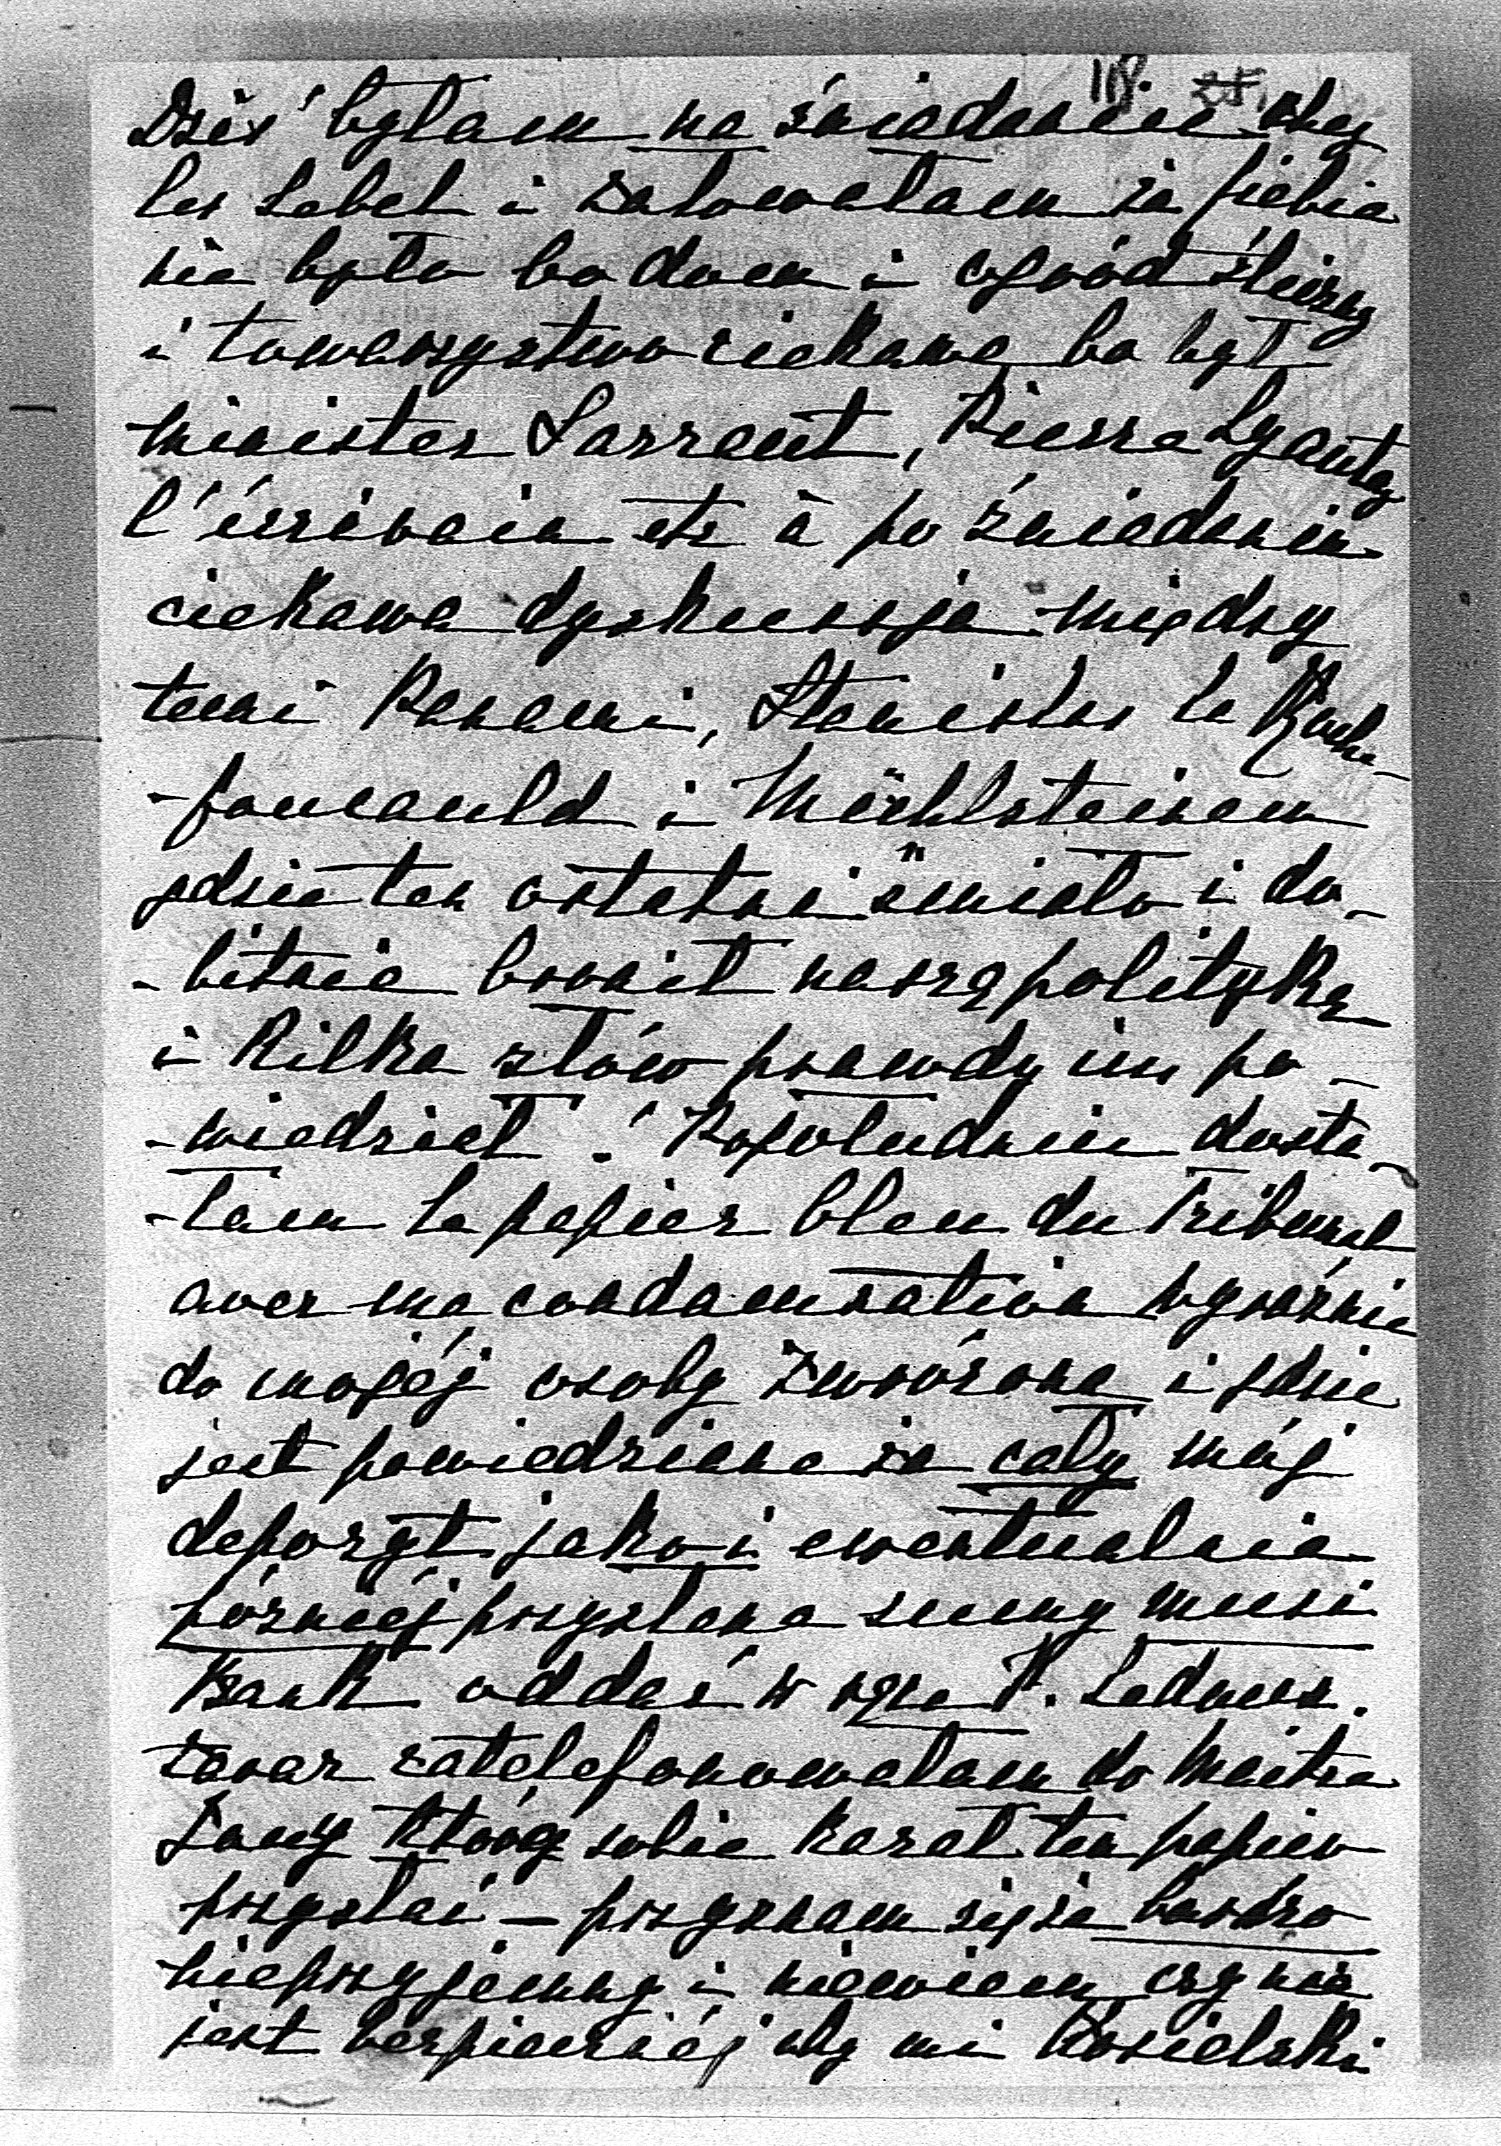 118.
Dziś byłam na śniadaniu chez
les Lebel i żałowałam że Ciebie
nie było bo dom i ogród śliczny
i towarzystwo ciekawe bo był
minister Sarraut, Pierre Lyautey
l'écrivain etc à po śniadaniu
ciekawa dyskussja między
temi Panami, Stanislas la Roche-
-foucauld i Mühlsteinem
gdzie ten ostatni śmiało i do-
-bitnie bronił naszą politykę
i kilka słów prawdy im po-
-wiedział! Popołudniu dosta-
-łam le papier bleu du Tribunal
avec ma condamnation wyraźnie
do mojéj osoby zwrócona i gdzie
jest powiedziane że cały mój
depozyt jako i ewentualnie
późniéj przysłane sumy musi
Bank oddać w ręce P.
zaraz zatelefonowałam do Maître
który sobie kazał ten papier
przysłać — przyznam się że bardzo
nieprzyjemny i niewiem czy nie
jest bezpieczniéj aby mi Kosielski